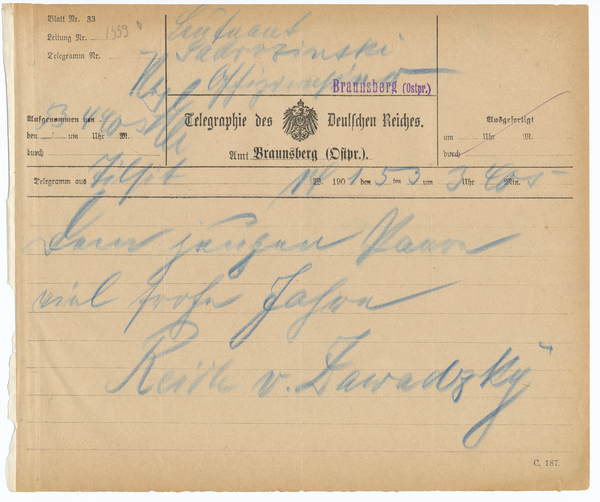 Blatt Nr. 33
Leitung Nr. 1959
Telegramm Nr.
Leutnant
Sadrozinski
Braunsberg (Ostpr.)
Aufgenommen von
den / um Uhr M.
durch
Telegraphie des Deutschen Reiches.
Amt Braunsberg (Ostpr.).
Ausgefertigt
um Uhr M.
durch
Telegramm aus Tilsit W. 190 den ten um 3 Uhr 40 Min.
Dem jungen Paare
viel frohe Jahre
v. Zawadzky
C. 187.